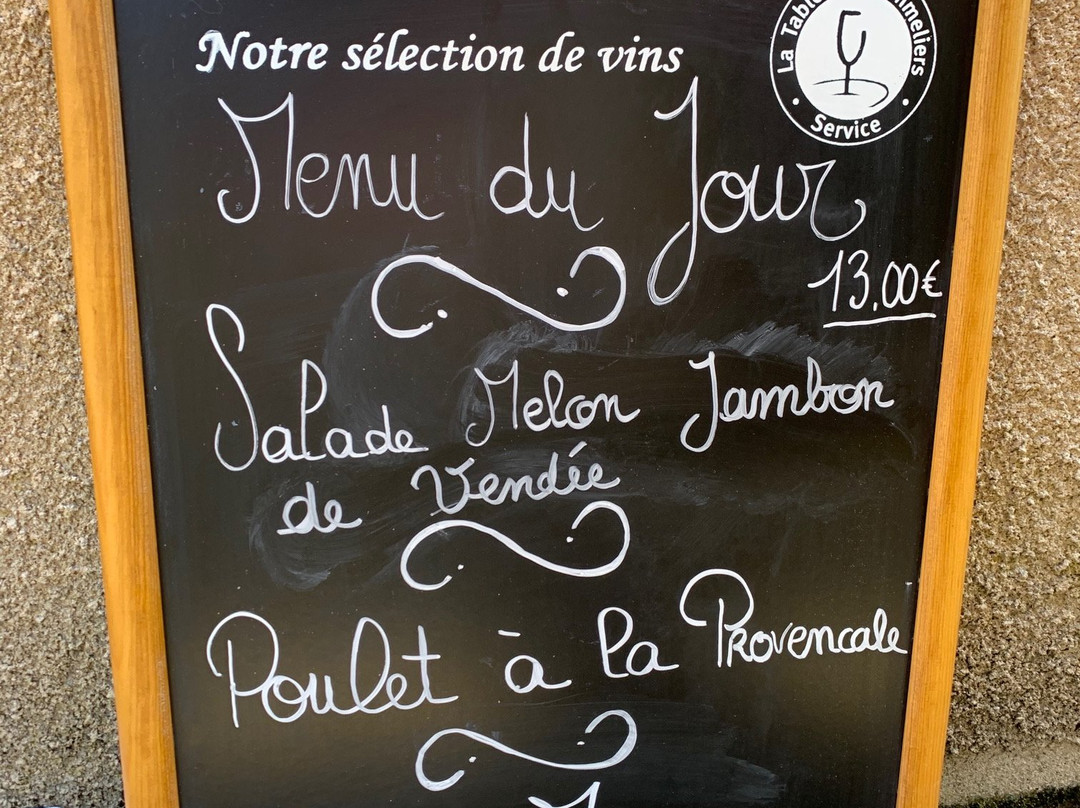 Notre sélection de vins
La Table
mmeliers
Service
Menu du Jour
13,00€
Salade Melon Jambon
de Vendée
Poulet à la Provencale